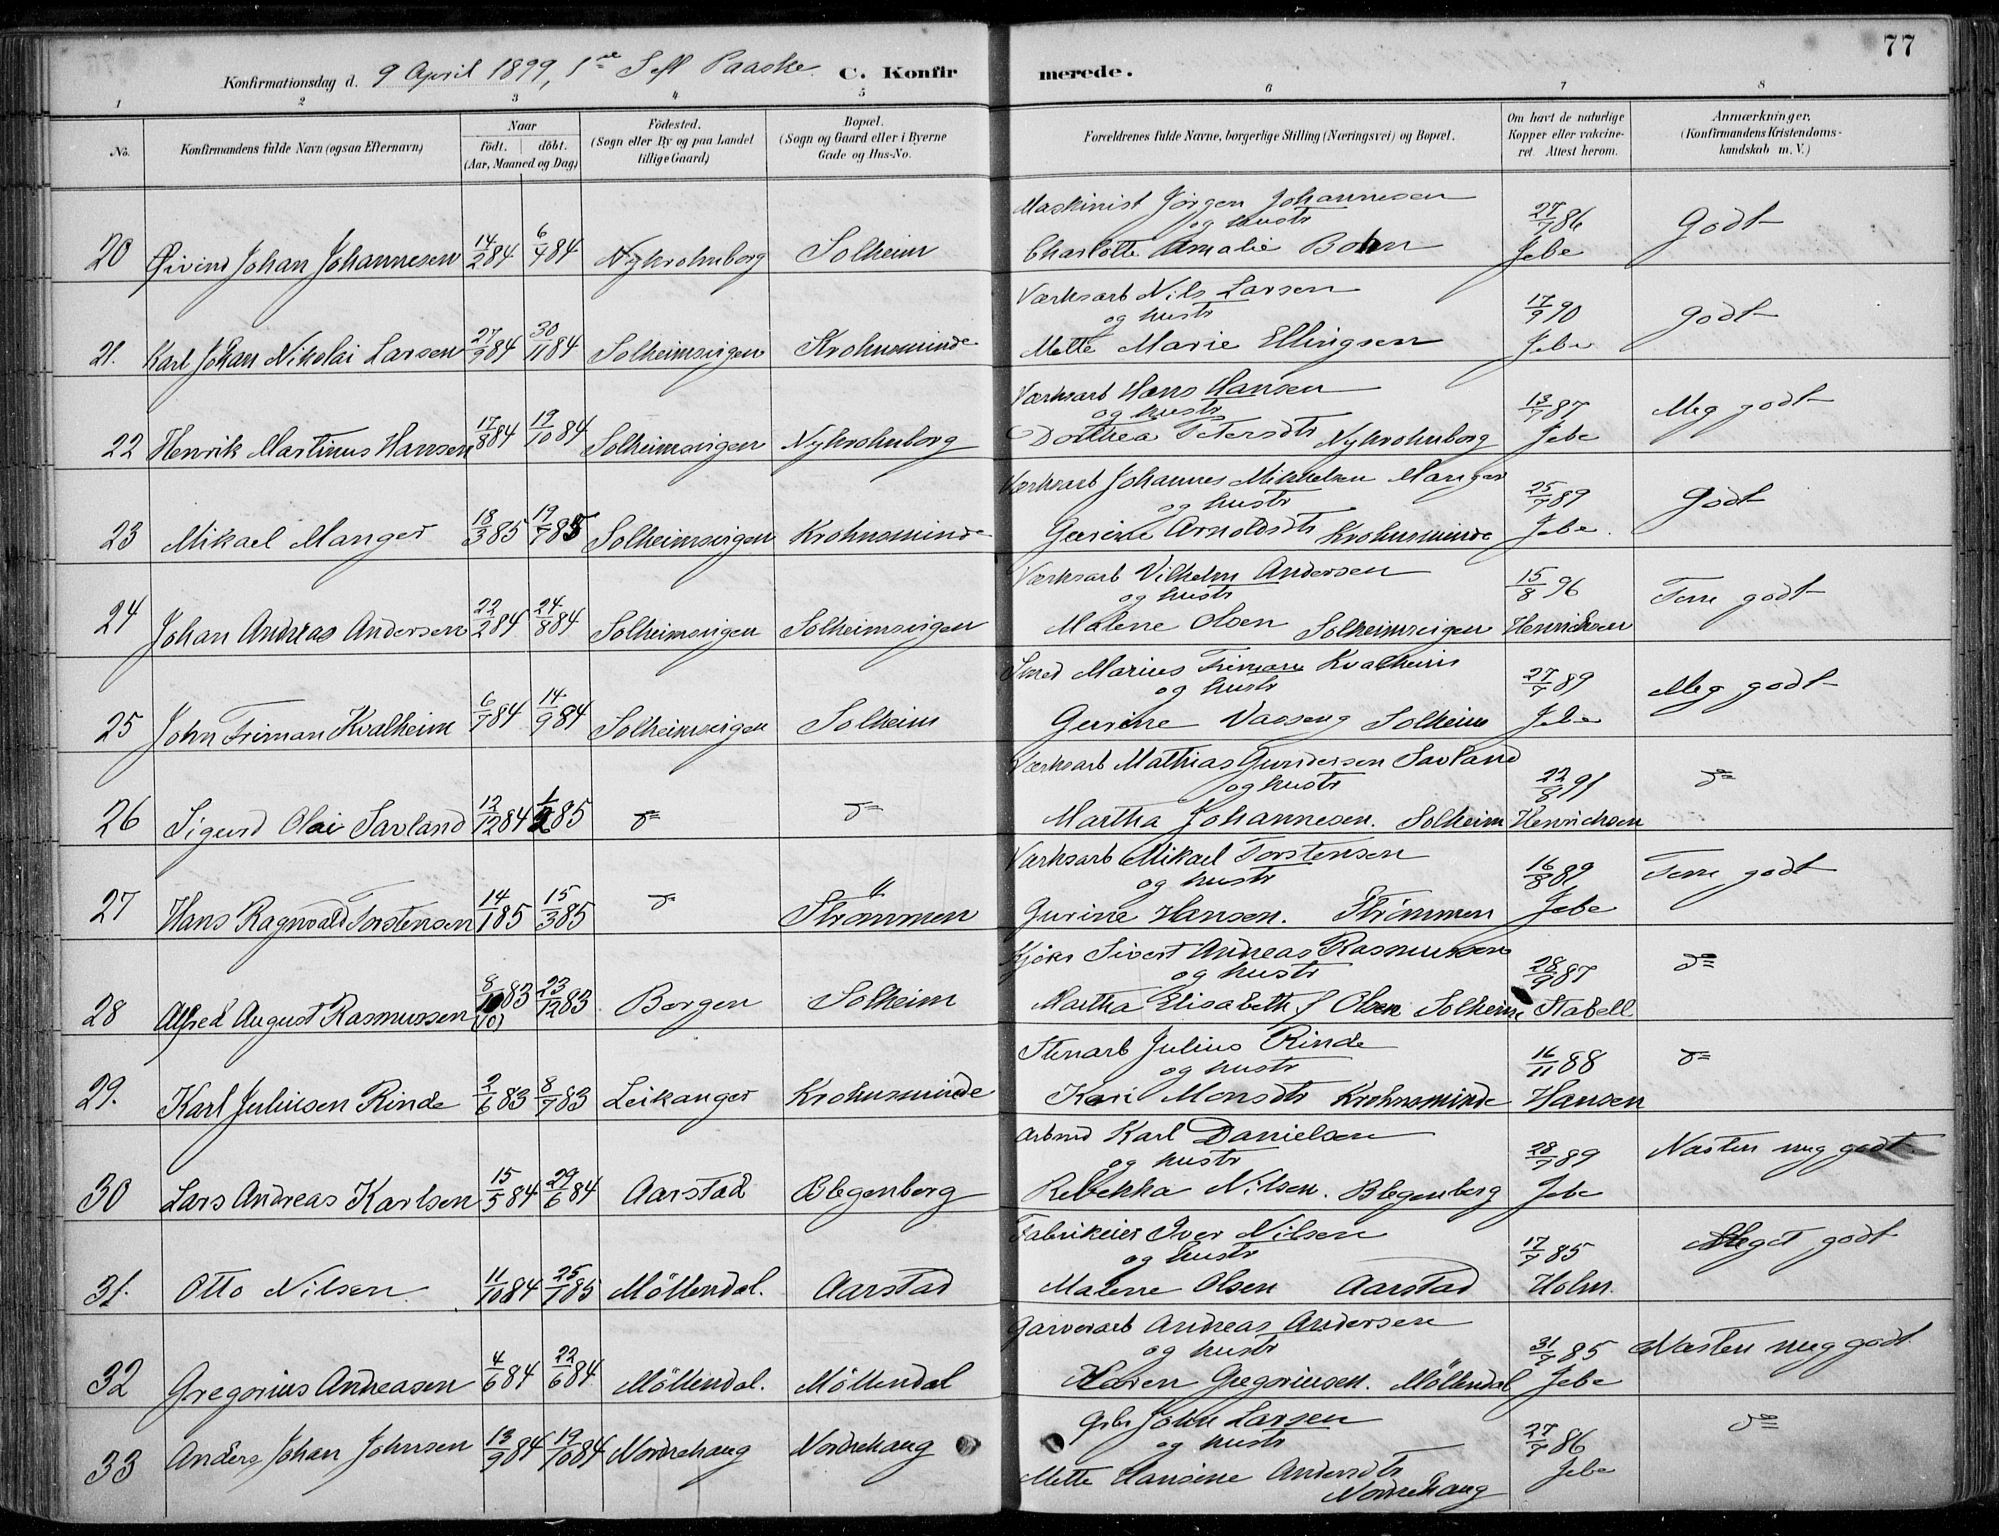 77
Konfirmationsdag d. 9 April 1899, 1ste S efl Paaske. C. Konfirmerede.
1 2 3 4 5 6 7 8
No. Konfirmandens fulde Navn (ogsaa Efternavn) Naar födt. döbt. (Aar, Maaned og Dag) Födested. (Sogn eller By og paa Landet tillige Gaard) Bopæl. (Sogn og Gaard eller i Byerne Gade og Hus-No. Forældrenes fulde Navne, borgerlige Stilling (Næringsvei) og Bopæl. Om havt de naturlige Kopper eller vakcineret. Attest herom. Anmærkninger. (Konfirmandens Kristendomskundskab m. V.)
Maskinist Jørgen Johannesen
og hustr
20 Øivind Johan Johannesen 14/2 84 6/4 84 Nykrohnborg Solheim Charlotte Amalie Bohn 27/7 86 Jebe Godt
Værksarb Nils Larsen
og hustr
21. Karl Johan Nikolai Larsen 27/9 84 30/11 84 Solheimsvigen Krohnsminde Mette Marie Ellingsen 17/9 90 Jebe godt
Værksarb Hans Hansen
og hustr
22 Henrik Martinus Hansen 17/8 84 19/10 84 Solheimsvigen Nykrohnborg Dorthea Petersdtr Nykrohnborg 13/7 87 Jebe Meg godt
Værksarb Johannes Mikkelsen Manger
og hustr
23 Mikael Manger 18/3 85 19/7 85 Solheimsvigen Krohnsminde Gurine Arnoldsdtr Krohnsminde 25/7 89 Jebe. Godt
Værksarb Vilhelm Andersen
og hustr
24 Johan Andreas Andersen 22/2 84 24/8 84 Solheimsvigen Solheimsvigen Malene Olsen Solheimsvigen 15/8 96 Henrichsen Temm godt
Smed Marius Friman Kvalheim
og hustr
25 John Friman Kvalheim 6/7 84 14/9 84 Solheimsvigen Solheim Gurine Vasseng Solheim 27/7 89 Jebe Meg godt
Værksarb Mathias Gundersen Savland
og hustr
26 Sigurd Olai Savland 12/12 84 1/2 85 do do Martha Johannesen. Solheim 22/8 91 Henrichsen do
Værksarb Mikael Torstensen
og hustr
27 Hans Ragnvald Torstensen 14/1 85 15/3 85 do Strömmen Gurine Hansen. Strömmen 16/8 89 Jebe Temm godt
Kjører Sivert Andreas Rasmussen
og hustr
28 Alfred August Rasmussen 8/10 83 (10) 23/12 83 Bergen Solheim Martha Elisabeth f Olsen Solheim 28/9 87 Stabell do
Stenarb Julius Rinde
og hustr
29. Karl Juliusen Rinde 2/6 83 8/7 83 Leikanger Krohnsminde Kari Monsdtr Krohnsminde 16/11 88 Hansen do
Arbmd Karl Danielsen
og hustr
30 Lars Andreas Karlsen 15/5 84 29/6 84 Aarstad Blegenberg Rebekka Nilsen. Blegenberg 28/7 89 Jebe Næsten meg godt
Fabrikeier Iver Nilsen
og hustr
31. Otto Nilsen. 11/10 84 25/1 85 Möllendal. Aarstad Malene Olsen Aarstad 17/7 85 Holm. Meget godt
Garverarb Andreas Andersen
og hustr
32 Gregorius Andreasen 4/6 84 22/6 84 Möllendal. Möllendal Karen Gregoriusen. Möllendal 31/7 85 Jebe Næsten meg godt
Gbr John Larsen
og hustr
33 Anders Johan Johnsen 13/9 84 19/10 84 Nordrehaug Nordrehaug Mette Hansine Andersdtr Nordrehaug 27/7 86 Jebe do